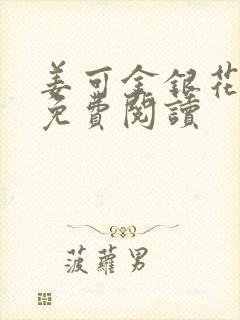 姜可金銀花
免費閱讀
菠蘿男